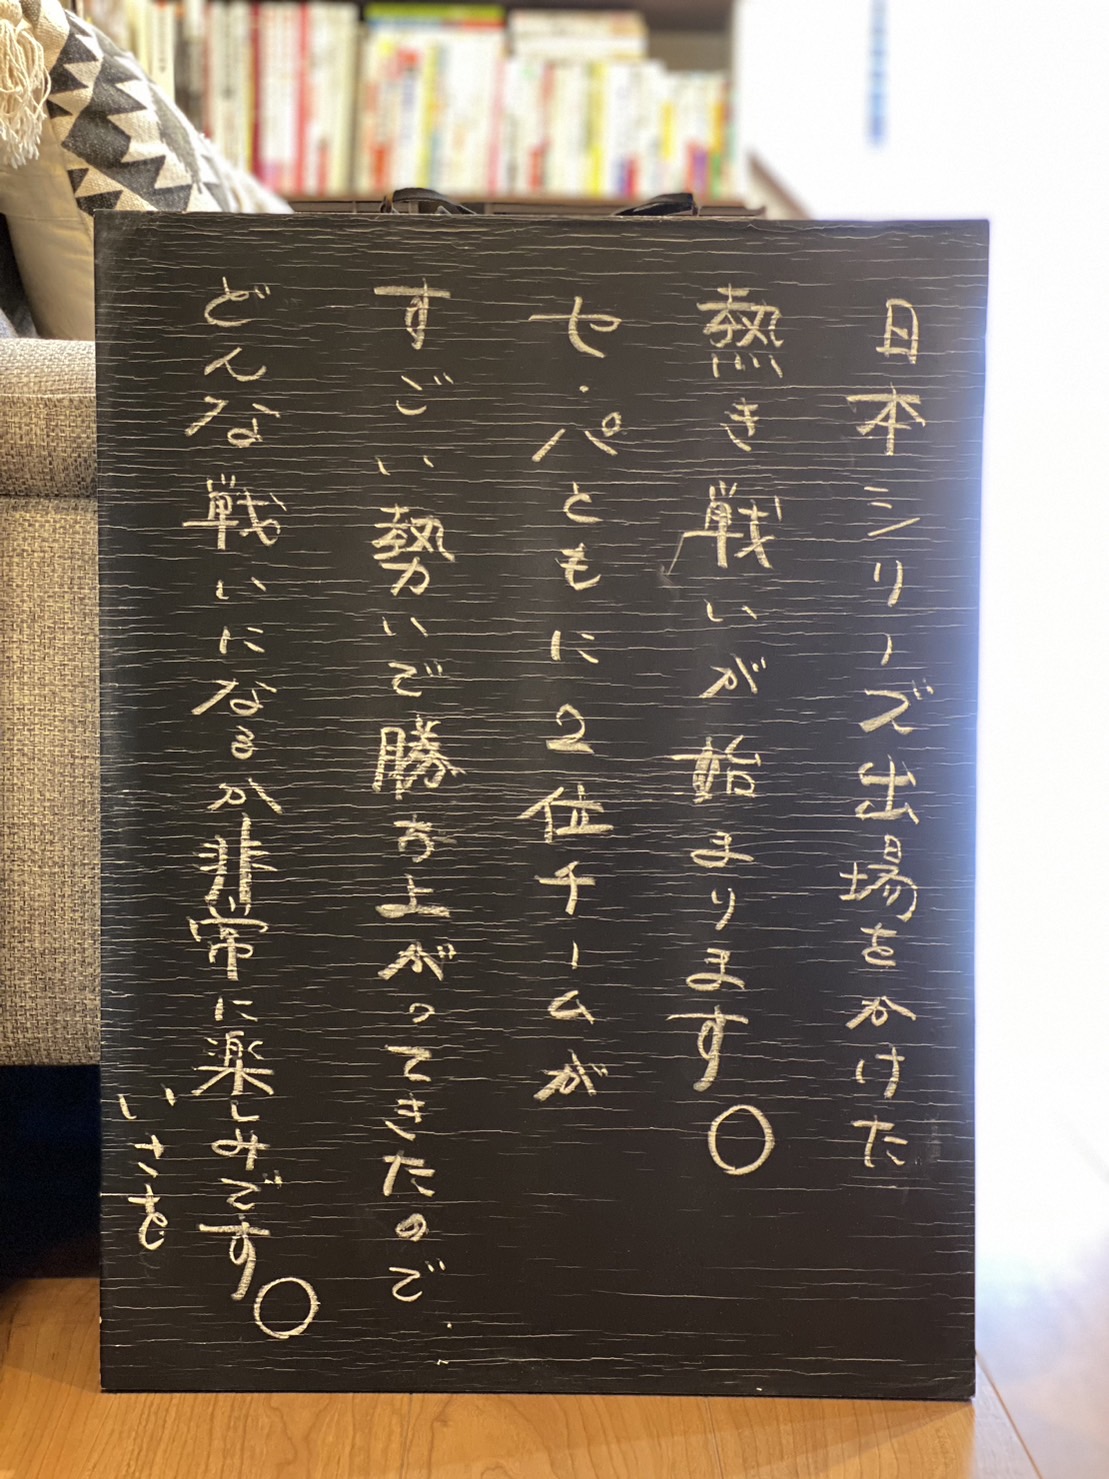 日本シリーズ出場をかけた
熱き戦いが始まります。
セ・パともに2位チームが
すごい勢いで勝ち上がってきたので
どんな戦いになるか非常に楽しみです。
いさむ